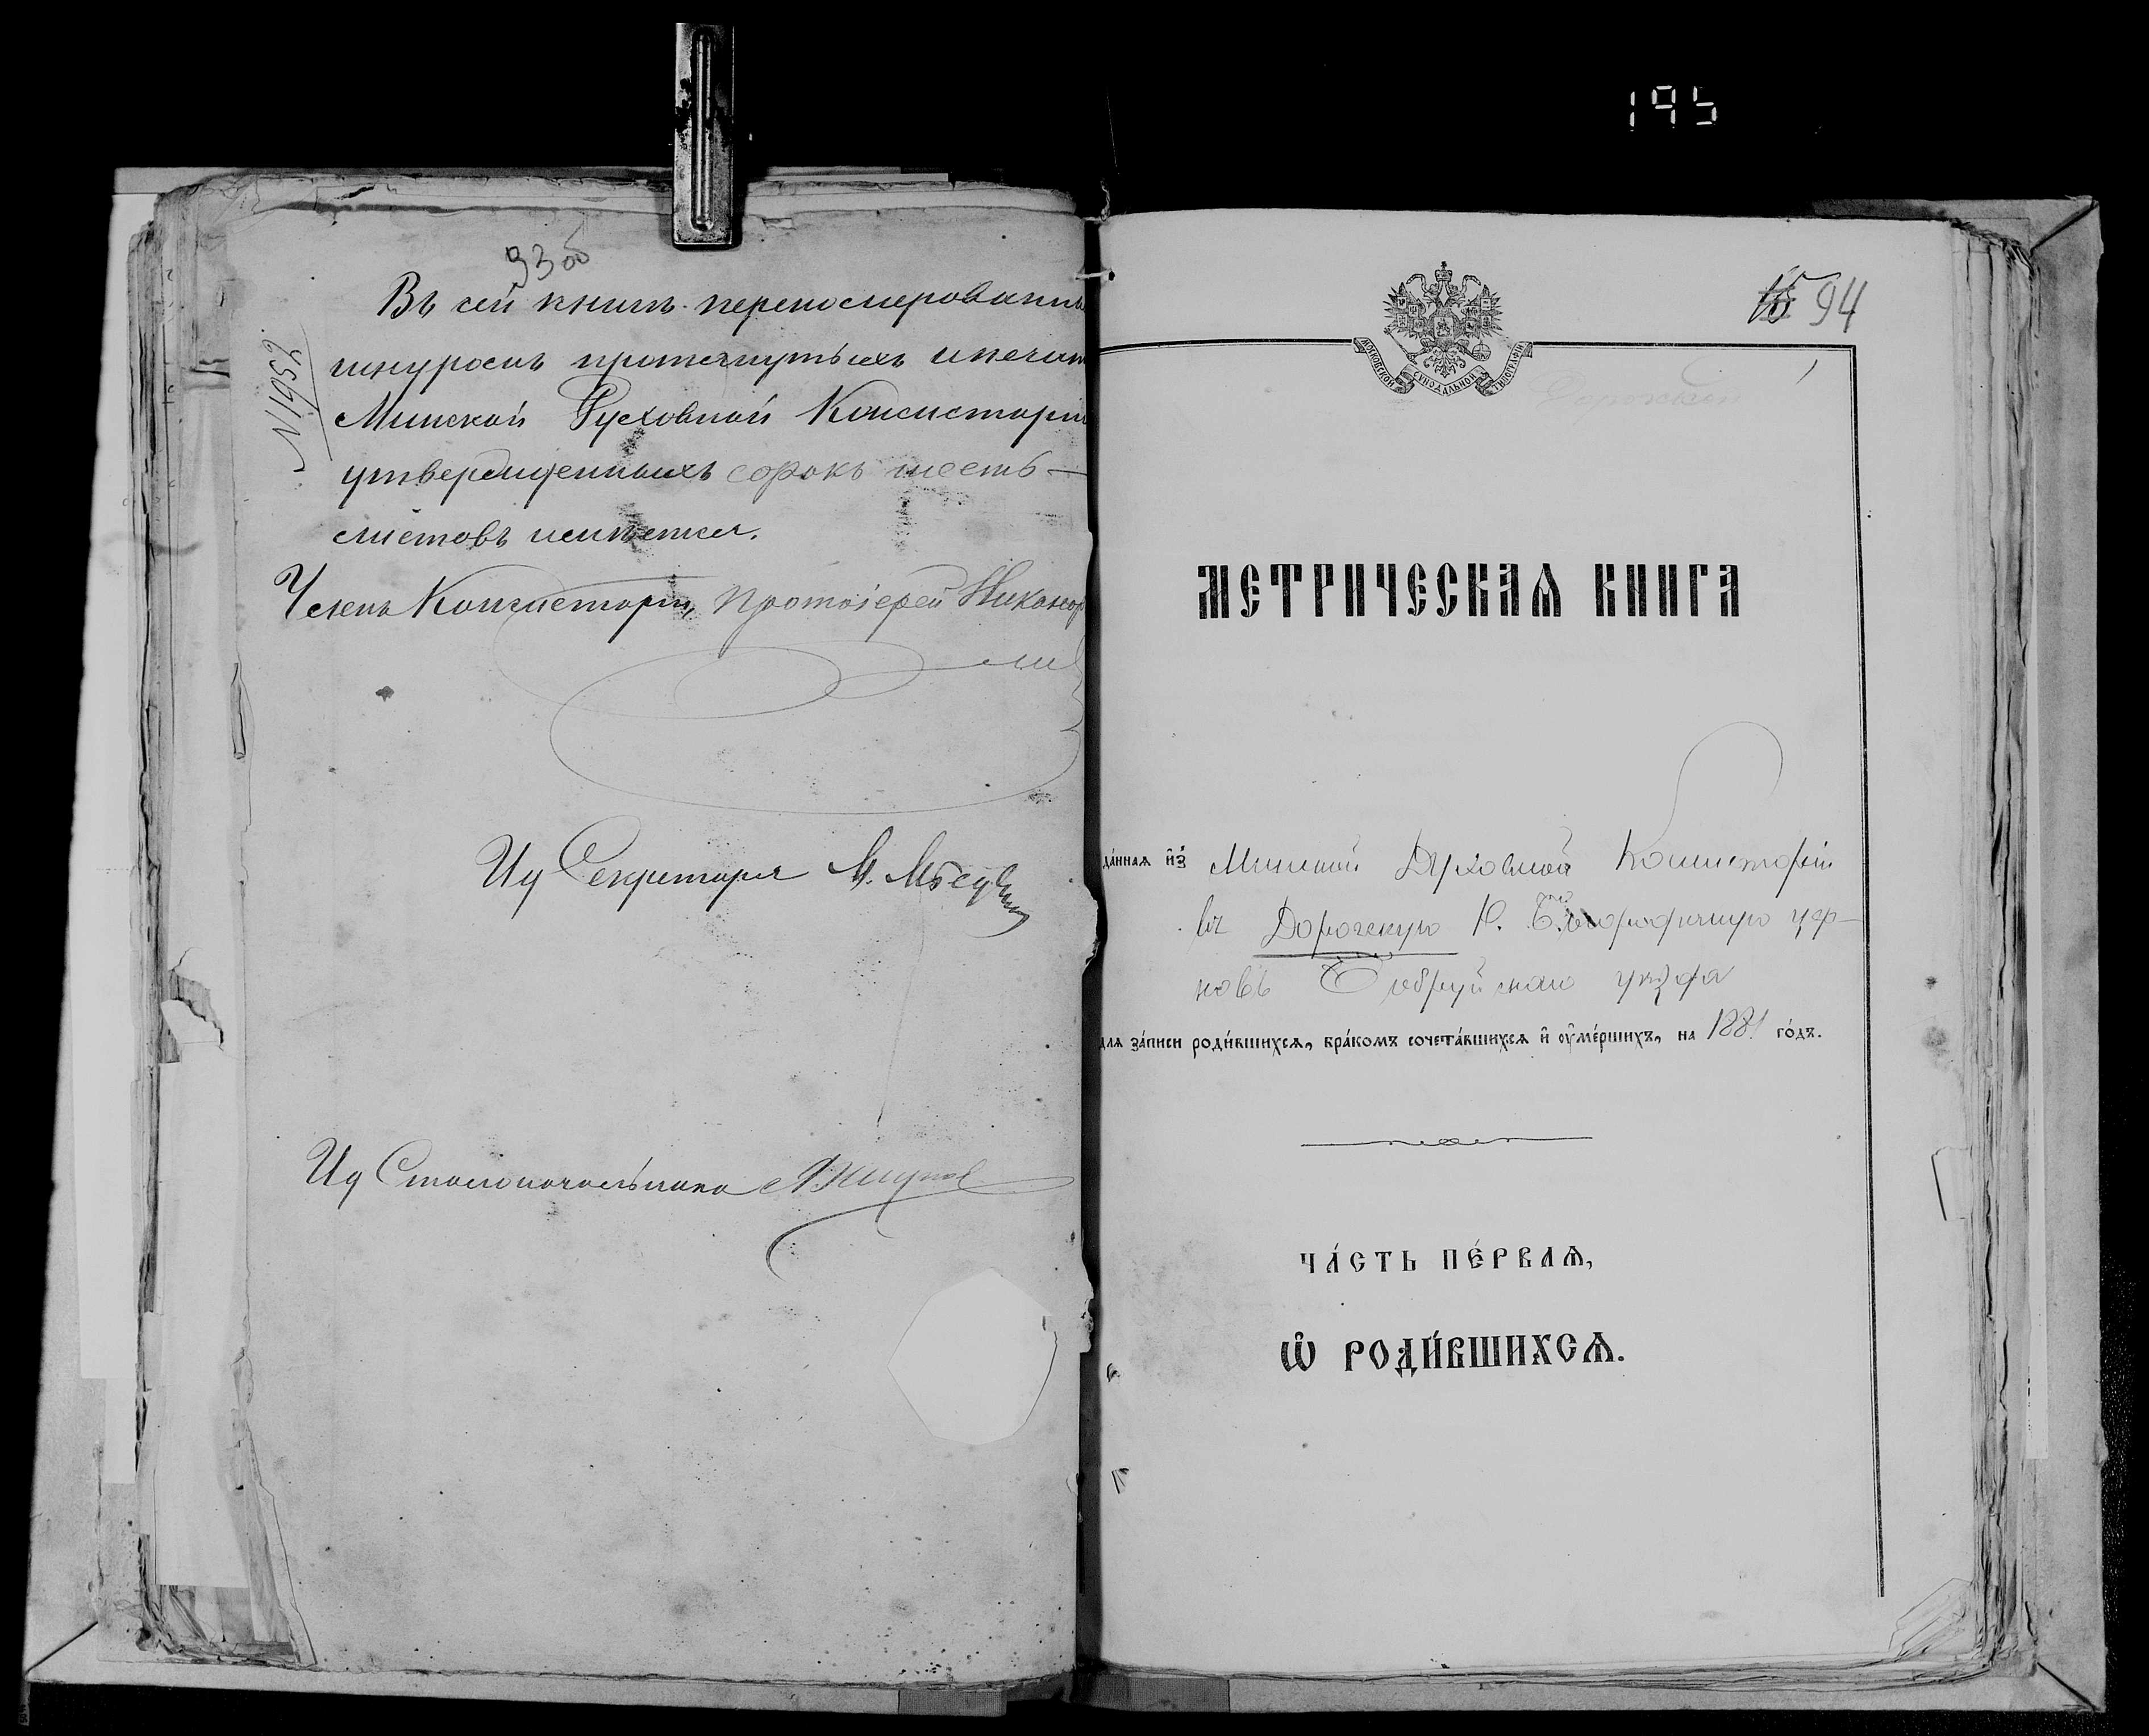 195
93 об
Въ сей книгѣ перенумерованны
шнуромъ протянутыхъ и печат
Минской Духовной Консисторіи
утвержденныхъ сорокъ шесть
листовъ имѣется.
№ 1952
Членъ Консисторіи, Протоіерей Никанор
Ид Секретаря М.
Ид Столоначальника
94
МОСКОВСКОЙ СУНОДАЛЬНОЙ ТИПОГРАФІИ
МЕТРИЧЕСКАѦ КНИГА
да́ннаѧ и҆з̾ Минской Духовной Консисторіи
въ Дорогскую Р. Богородичную цер-
ковь Бобруйскаго уѣзда
для за́писи роди́вшихсѧ, бра́комъ сочета́вшихсѧ и҆ ᲂу҆ме́ршихъ, на 1881 го́дъ.
ЧА́СТЬ ПЕ́РВАѦ,
Ѡ҆ РОДИ́ВШИХСѦ.